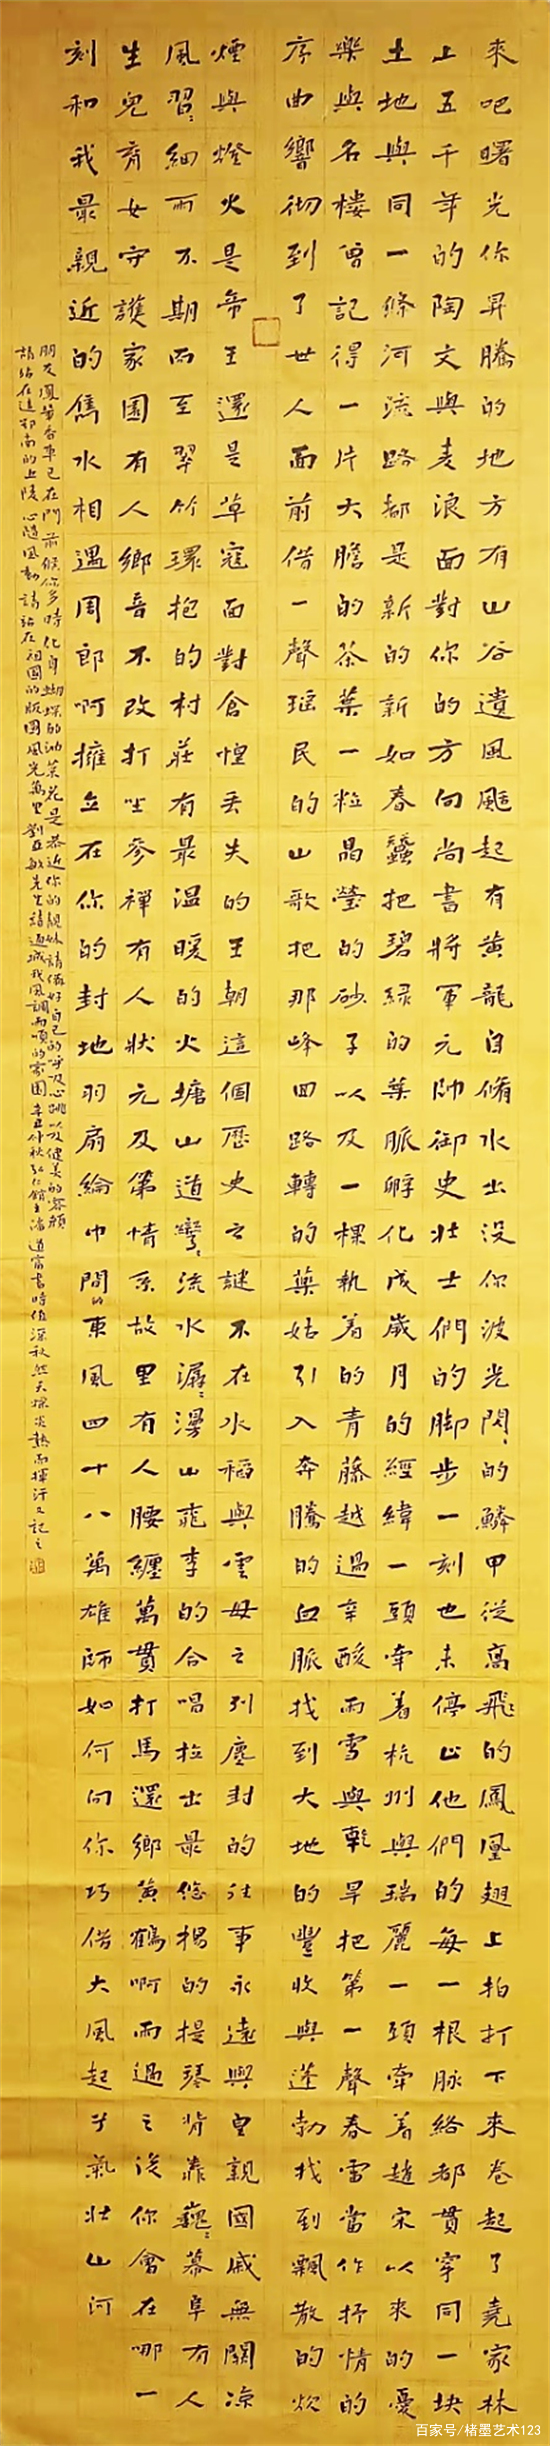 來吧曙光你昇騰的地方有山谷遺風颺起有黄龍自脩水出没你波光閃〻的鱗甲從高飛〻的鳳凰翅上拍打下來卷起了堯家林
上五千年的陶文與麦浪面對你的方向尚書將軍元帥御史壮士們的脚步一刻也未停止他們的每一根脉絡都貫穿同一块
土地與同一條河流路都是新的新如春蠶把碧緑的葉脈孵化成歲月的經緯一頭牵着杭州與瑞麗一頭牵着趙宋以來的憂
樂與名楼曾記得一片大膽的茶葉一粒晶瑩的砂子以及一棵執着的青藤越過辛酸雨雪與乾旱把第一聲春雷當作抒情的
序曲響彻到了世人面前借一聲瑶民的山歌把那峰回路轉的藥姑引入奔騰的血脈找到大地的豐收與蓬勃找到飄散的炊
煙與燈火是帝王還是草寇面對倉惶丢失的王朝這個歷史之謎不在水稻與雲母之列塵封的往事永遠與皇親國戚無關凉
風習〻細雨不期而至翠竹環抱的村莊有最温暖的火塘山道彎〻流水潺〻漫山桃李的合唱拉出最悠揚的提琴背靠巍〻幕阜有人
生兒育女守護家園有人鄉音不改打坐參禪有人狀元及第情系故里有人腰纏萬貫打馬還鄉黄鶴啊雨過之後你會在哪一
刻和我最親近的雋水相遇周郎啊擁立在你的封地羽扇綸巾間的東風四十八萬雄師如何向你巧借大風起兮氣壯山河
朋友鳳輦香車已在門前候你多時化身蝴蝶的油菜花是恭近你的親妹請備好自己的呼及心跳以及健美的容顔
請站在這鄂南的丘陵心隨風動請站在祖國的版圖風光萬里劉亞敏先生詩通城我風調雨順的家園辛丑仲秋弘仁館主潘道富書時值深秋然天燥炎熱而揮汗又記之
百家号/楮墨艺术123